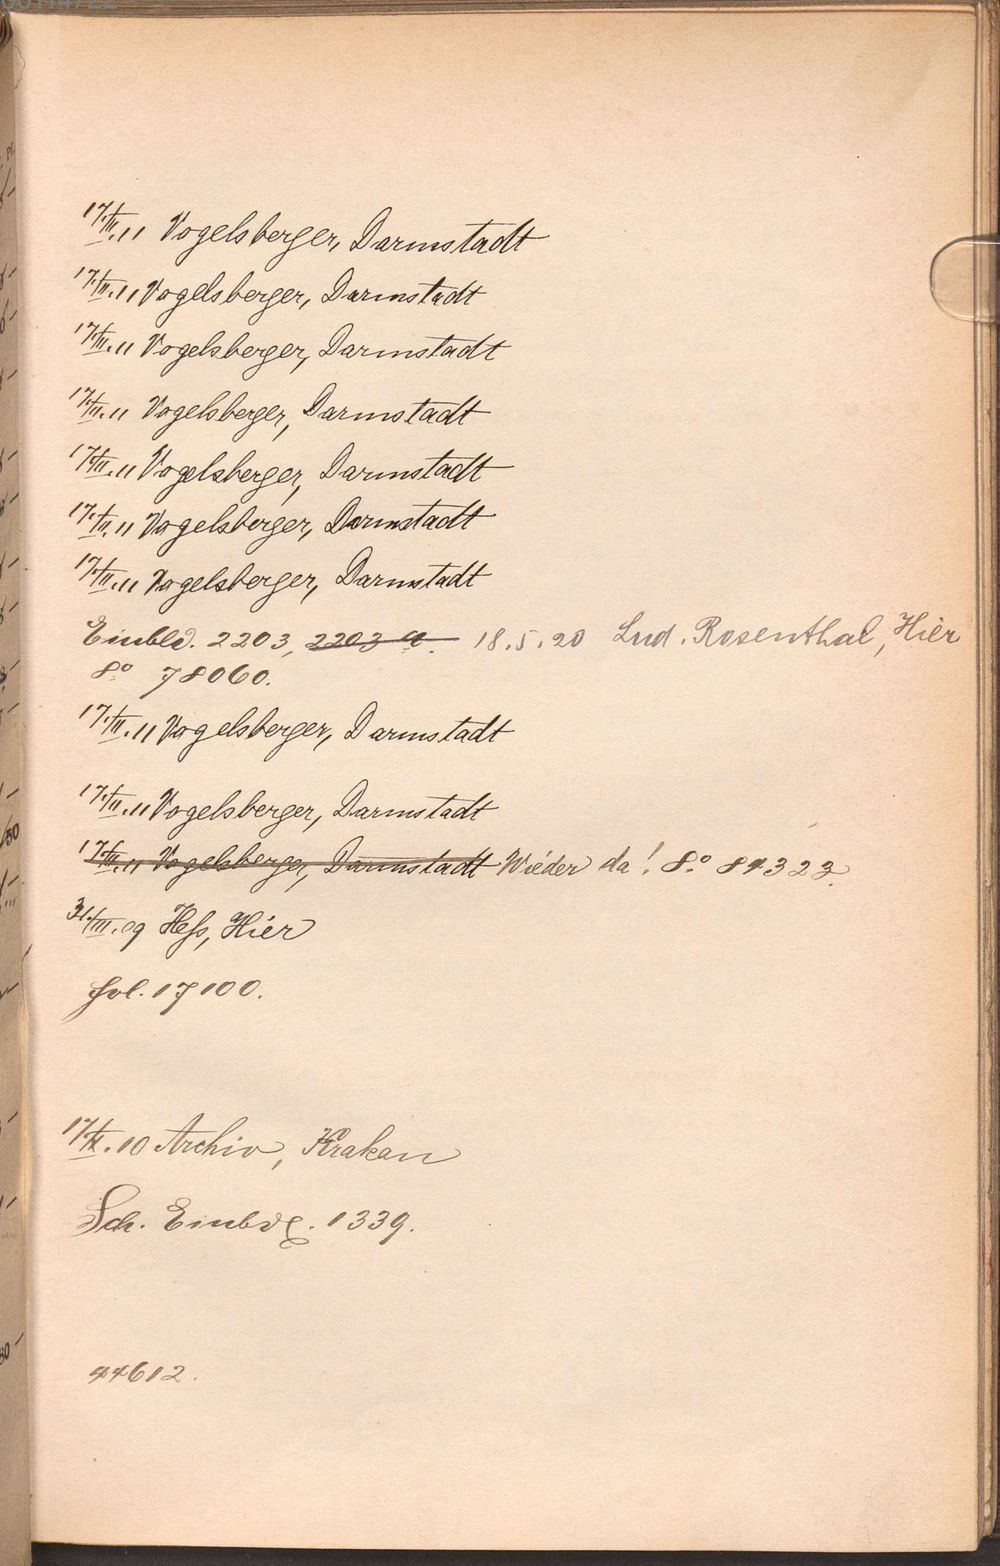 17./III.11 Vogelsberger, Darmstadt
17./III.11 Vogelsberger, Darmstadt
17./III.11 Vogelsberger, Darmstadt
17./III.11 Vogelsberger, Darmstadt
17./III.11 Vogelsberger, Darmstadt
17./III.11 Vogelsberger, Darmstadt
17./III.11 Vogelsberger, Darmstadt
Einbld. 2203, 2203 a. 18.5.20 Lud. Rosenthal, Hier
8° 78060.
17./III.11 Vogelsberger, Darmstadt
17./III.11 Vogelsberger, Darmstadt
17./III.11 Vogelsberger, Darmstadt Wieder da! 8° 84323.
31./III.09 Heß, Hier
fol. 17100.
17./X.10 Archiv, Krakau
Sch. Einbdg. 1339.
44612.